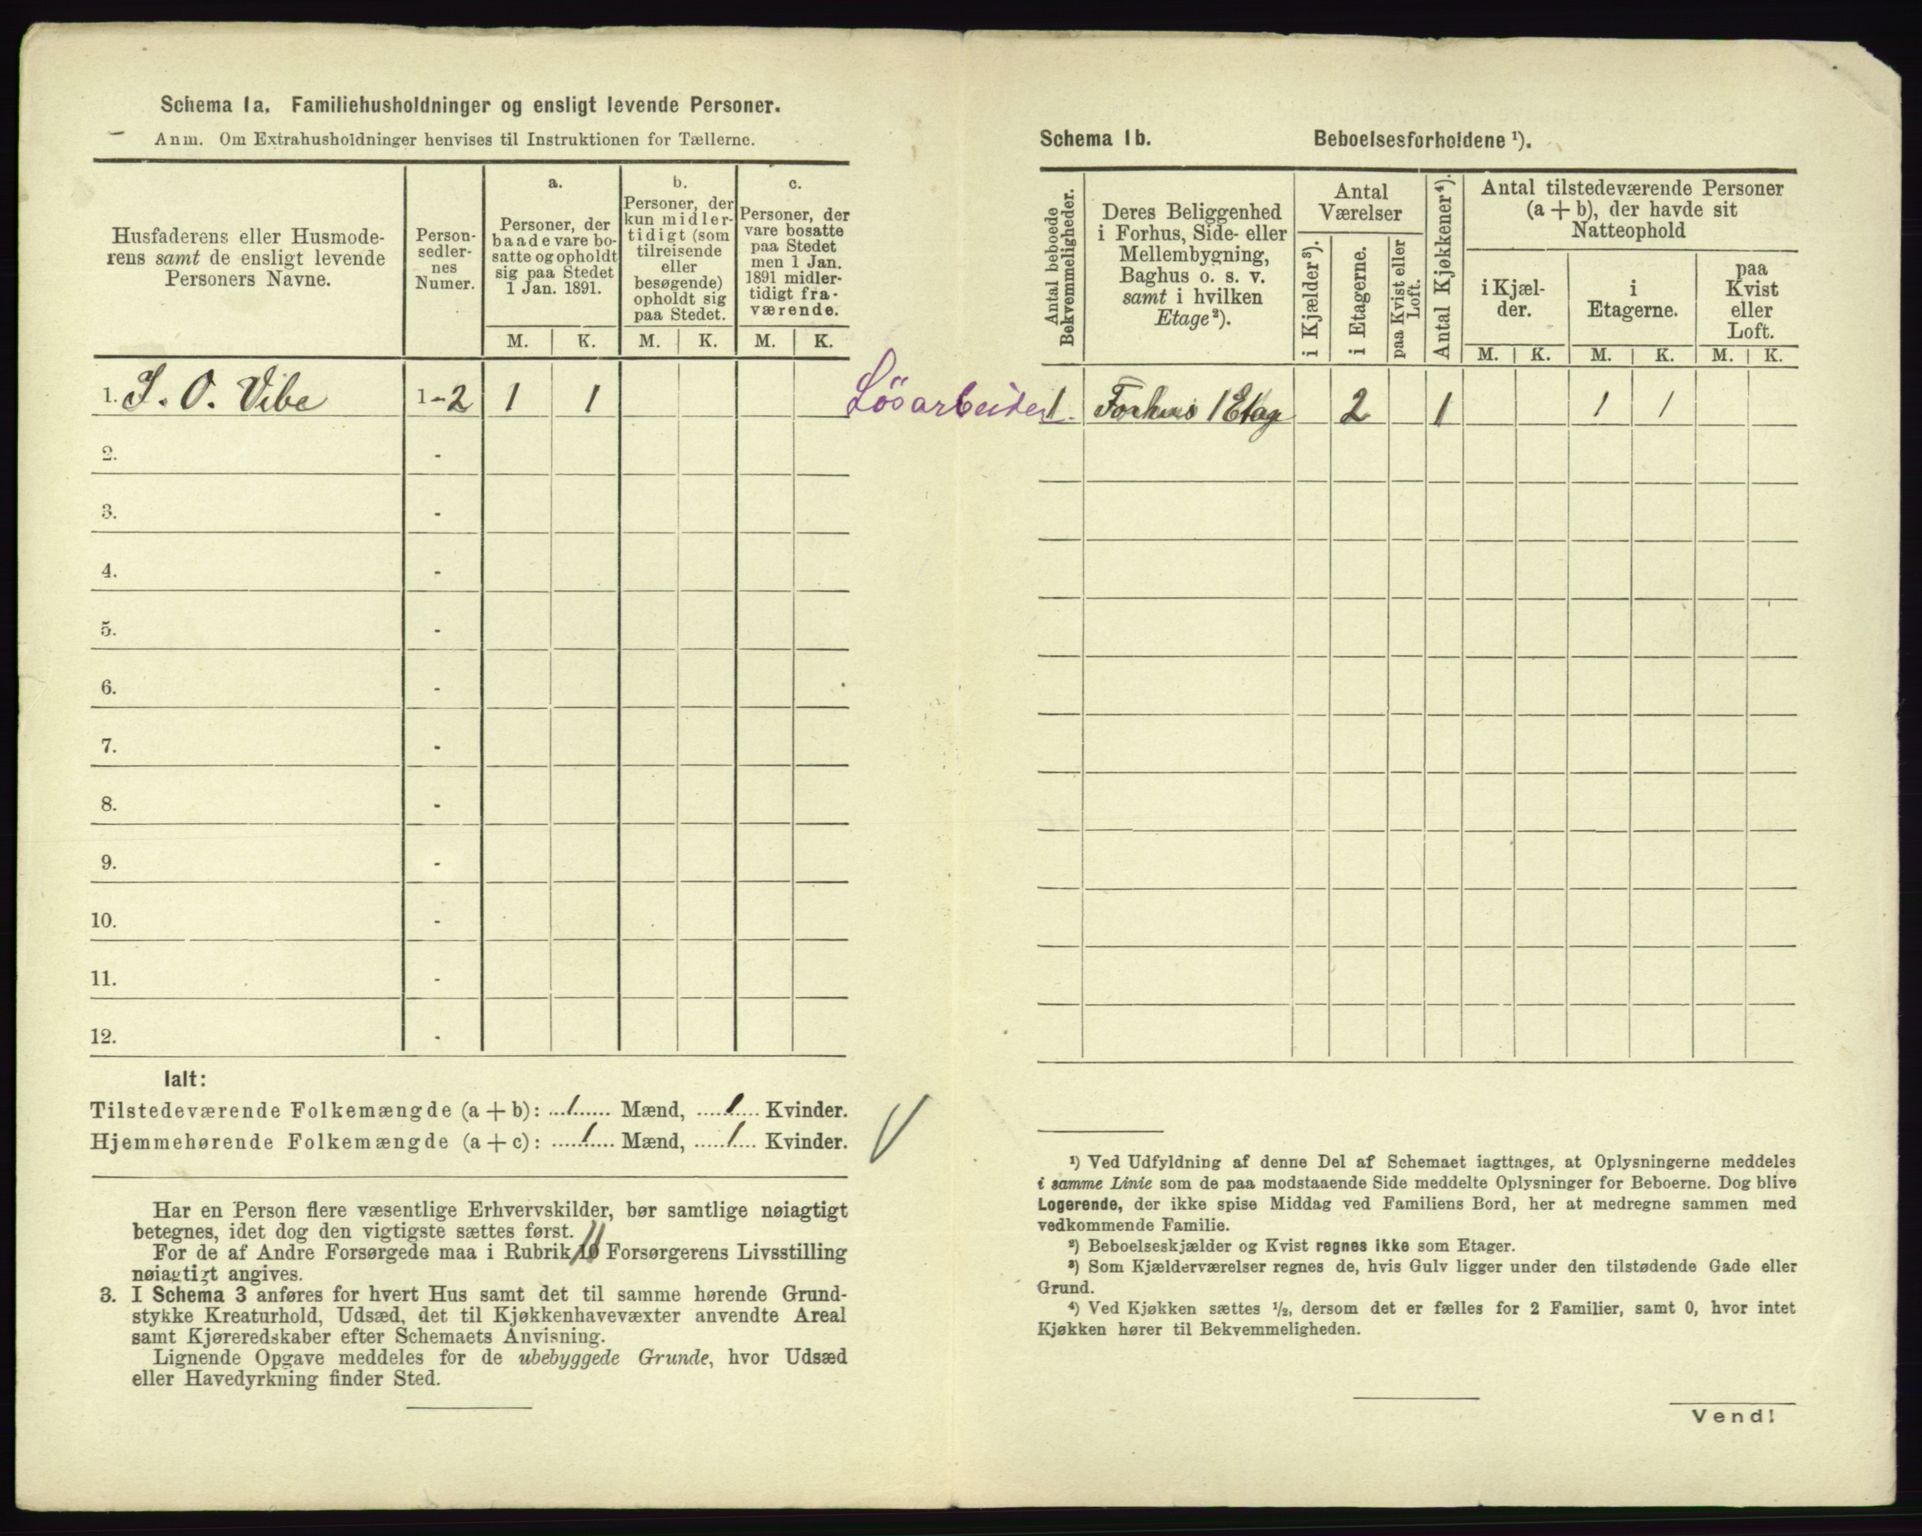 Schema 1a. Familiehusholdninger og ensligt levende Personer.
Anm. Om Extrahusholdninger henvises til Instruktionen for Tællerne.
Husfaderens eller Husmode-
rens samt de ensligt levende
Personers Navne.
Person-
sedler-
nes
Numer.
a.
Personer, der
baade vare bo-
satte og opholdt
sig paa Stedet
1 Jan. 1891.
b.
Personer, der
kun midler-
tidigt (som
tilreisende
eller
besøgende)
opholdt sig
paa Stedet.
c.
Personer, der
vare bosatte
paa Stedet
men 1 Jan.
1891 midler-
tidigt fra-
værende.
M. K. M. K. M. K.
1. J. O. Vibe 1-2 1 1 Lösarbeider
2. -
3. -
4. -
5. -
6. -
7. -
8. -
9. -
10. -
11. -
12. -
Ialt:
Tilstedeværende Folkemængde (a + b): ...1...... Mænd, .....1.... Kvinder.
Hjemmehørende Folkemængde (a + c): .....1.... Mænd, ......1... Kvinder.
Har en Person flere væsentlige Erhvervskilder, bør samtlige nøiagtigt
betegnes, idet dog den vigtigste sættes først.
11
For de af Andre Forsørgede maa i Rubrik 10 Forsørgerens Livsstilling
nøiagtigt angives.
3. I Schema 3 anføres for hvert Hus samt det til samme hørende Grund-
stykke Kreaturhold, Udsæd, det til Kjøkkenhavevæxter anvendte Areal
samt Kjøreredskaber efter Schemaets Anvisning.
Lignende Opgave meddeles for de ubebyggede Grunde, hvor Udsæd
eller Havedyrkning finder Sted.
Schema 1b. Beboelsesforholdene ¹).
Antal beboede
Bekvemmeligheder.
Deres Beliggenhed
i Forhus, Side- eller
Mellembygning,
Baghus o. s. v.
samt i hvilken
Etage²).
Antal
Værelser
i Kjælder³).
i Etagerne.
paa Kvist eller
Loft.
Antal Kjøkkener⁴).
Antal tilstedeværende Personer
(a + b), der havde sit
Natteophold
i Kjæl-
der.
i
Etagerne.
paa
Kvist
eller
Loft.
M. K. M. K. M. K.
1 Forhus 1 Etag 2 1 1 1
¹) Ved Udfyldning af denne Del af Schemaet iagttages, at Oplysningerne meddeles
i samme Linie som de paa modstaaende Side meddelte Oplysninger for Beboerne. Dog blive
Logerende, der ikke spise Middag ved Familiens Bord, her at medregne sammen med
vedkommende Familie.
²) Beboelseskjælder og Kvist regnes ikke som Etager.
³) Som Kjælderværelser regnes de, hvis Gulv ligger under den tilstødende Gade eller
Grund.
⁴) Ved Kjøkken sættes ½, dersom det er fælles for 2 Familier, samt 0, hvor intet
Kjøkken hører til Bekvemmeligheden.
Vend!